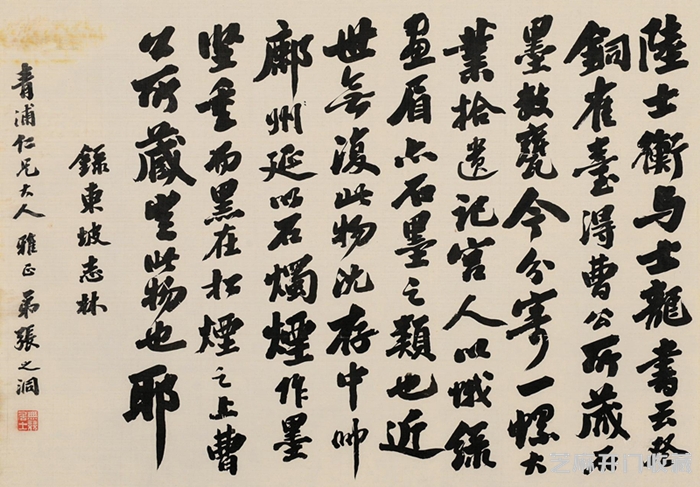 陸士衡与士龍書云登
銅雀臺得曹公所藏石
墨數甕今分寄一螺大
業拾遺記宫人以蛾綠
畫眉亦石墨之類也近
世無復此物沈存中帥
鄜州延以石燭煙作墨
堅重而黑在松煙之上曹
公所藏豈此物也耶
錄東坡志林
青浦仁兄大人雅正弟張之洞
艺席开门收藏